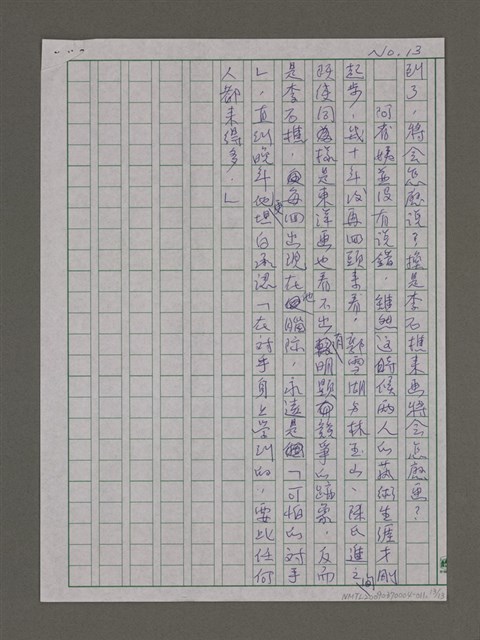 No. 13
到了,將會怎麼說?換是李石樵來画將會怎麼画?
阿有姨並沒有說錯,雖然這時候兩人的藝術生涯才剛
起步,幾十年後再回頭來看,郭雪湖与林玉山、陳氏進之間
既使同樣是東洋画也看不出有明顯競爭的跡象,反而
是李石樵,每回出現在他腦際,永遠是「可怕的對手
」,直到晚年他更坦白承認「在对手身上学到的,要比任何
人都来得多.」